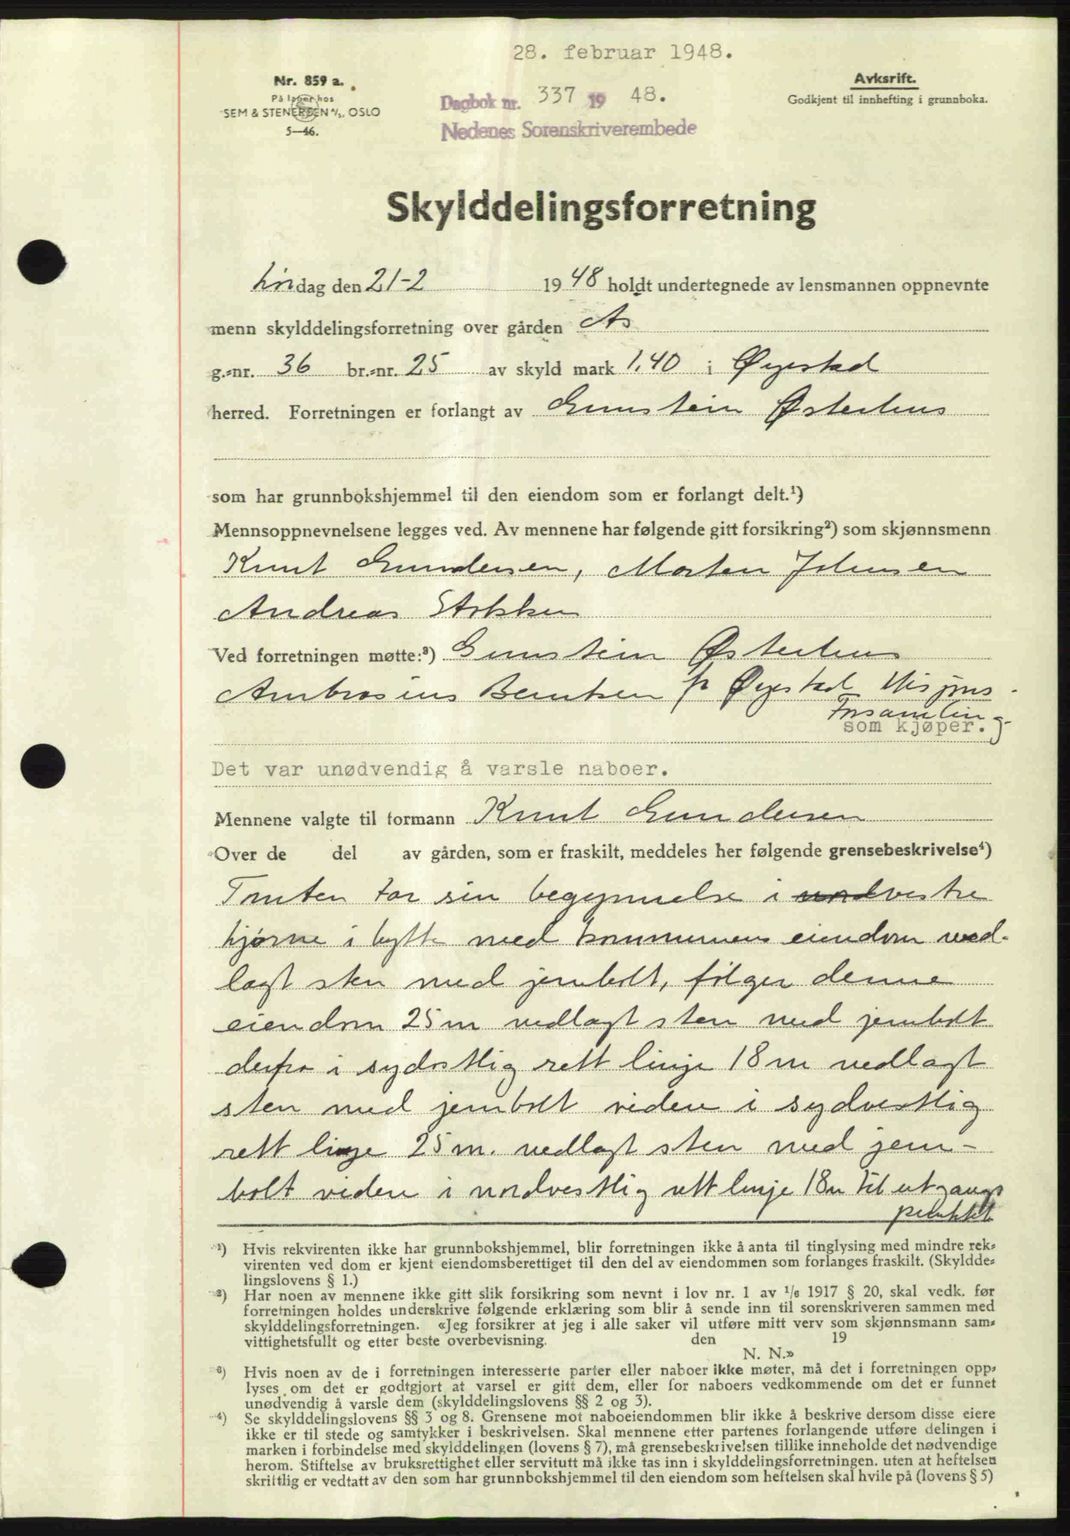 28. februar 1948.
Nr. 859 a.
På lager hos
SEM & STENERSEN A/S, OSLO
5—46.
Dagbok nr. 337 19 48.
Nedenes Sorenskriverembede
Avksrift.
Godkjent til innhefting i grunnboka.
Skylddelingsforretning
Lördag den 21-2 1948 holdt undertegnede av lensmannen oppnevnte
menn skylddelingsforretning over gården As
g.-nr. 36 br.-nr. 25 av skyld mark 1,40 i Øyestad
herred. Forretningen er forlangt av Gunstein Østerhus
som har grunnbokshjemmel til den eiendom som er forlangt delt.¹)
Mennsoppnevnelsene legges ved. Av mennene har følgende gitt forsikring²) som skjønnsmenn
Knut Gundersen, Morten Johnsen
Andreas Stokken
Ved forretningen møtte:³) Gunstein Østerhus
Ambrosius Berntsen f Øyestad Misjons-
forsamling
som kjøper.
Det var unødvendig å varsle naboer.
Mennene valgte til formann Knut Gundersen
Over de del av gården, som er fraskilt, meddeles her følgende grensebeskrivelse⁴)
Tomten tar sin begynnelse i vestre
hjørne i bytte med kommunens eiendom ned-
lagt sten med jernbolt, følger denne
eiendom 25 m nedlagt sten med jernbolt
derfra i sydostlig rett linje 18 m nedlagt
sten med jernbolt videre i sydvestlig
rett linje 25 m. nedlagt sten med jern-
bolt videre i nordvestlig rett linje 18 m til utgangs
punktet
¹) Hvis rekvirenten ikke har grunnbokshjemmel, blir forretningen ikke å anta til tinglysing med mindre rek-
virenten ved dom er kjent eiendomsberettiget til den del av eiendommen som forlanges fraskilt. (Skyldde-
lingslovens § 1.)
²) Har noen av mennene ikke gitt slik forsikring som nevnt i lov nr. 1 av 1/6 1917 § 20, skal vedk. før
forretningen holdes underskrive følgende erklæring som blir å sende inn til sorenskriveren sammen med
skylddelingsforretningen. «Jeg forsikrer at jeg i alle saker vil utføre mitt verv som skjønnsmann sam-
vittighetsfullt og etter beste overbevisning. den 19
N. N.»
³) Hvis noen av de i forretningen interesserte parter eller naboer ikke møter, må det i forretningen opp-
lyses om det er godtgjort at varsel er gitt dem, eller for naboers vedkommende om det er funnet
unødvendig å varsle dem (skylddelingslovens §§ 2 og 3).
⁴) Se skylddelingslovens §§ 3 og 8. Grensene mot naboeiendommen blir ikke å beskrive dersom disse eiere
ikke er til stede og samtykker i beskrivelsen. Skal mennene etter partenes forlangende utføre delingen i
marken i forbindelse med skylddelingen (lovens § 7), må grensebeskrivelsen tillike inneholde det nødvendige
herom. Stiftelse av bruksrettighet eller servitutt må ikke tas inn i skylddelingsforretningen, uten at heftelsen
skriftlig er vedtatt av den som har grunnbokshjemmel til den eiendom som heftelsen skal hvile på (lovens § 5)